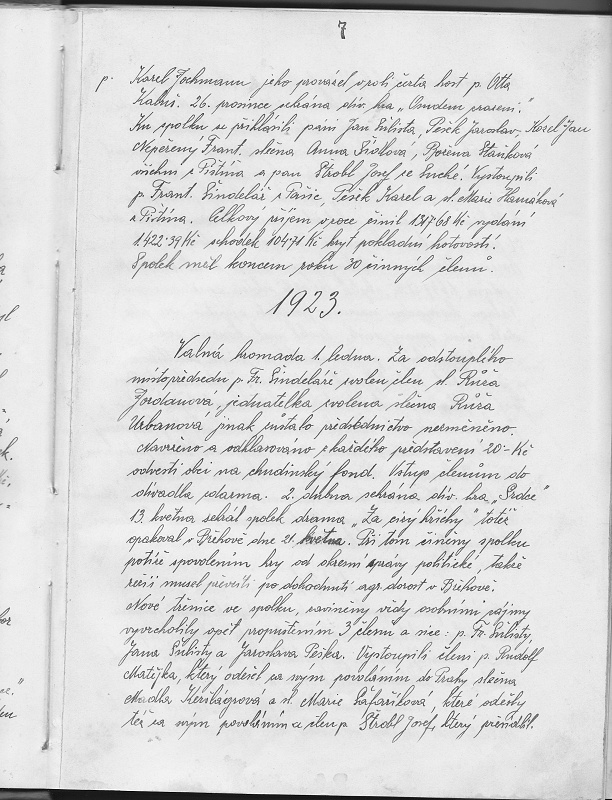 7
p. Karel Jochmann jeho prováděl v roli čerta host p. Otta
Kabuš. 26. prosince sehrána div. hra „Osudem
Ku spolku se přihlásili páni Jan Šulista, Pešek Jaroslav, Karel Jan
Nepřený Frant. slečna Anna Šídlová, Božena Staňková
všichni z Pištína a pan Strobl Josef ze Suché. Vystoupili
p. Frant. Šindelář z Pašic, Pešek Karel a sl. Marie
z Pištína. Celkový příjem v roce činil 1317·68 Kč vydání
1422·39 Kč schodek 104·71 Kč kryt pokladní hotovostí.
Spolek měl koncem roku 30 činných členů.
1923.
Valná hromada 1. ledna. Za odstouplého
místopředsedu p. Fr. Šindeláře zvolen člen sl. Růža
Jordanová, jednatelka zvolena slečna Růža
Urbanová jinak zůstalo předsednictvo nezměněno.
Navrženo a odhlasováno z každého představení 20·- Kč
odvésti obci na chudinský fond. Vstup členům do
divadla zdarma. 2. dubna sehrána div. hra „Srdce"
13. května sehrál spolek drama „Za cizí hříchy" totéž
opakoval v Břehově dne 21. května. Při tom činěny spolku
potíže s povolením hry od okresní správy politické, takže
režii musel převésti po dohodnutí agr. dorost v Břehově.
Nové třenice ve spolku, zaviněny vždy osobními zájmy
vyvrcholily opět propuštěním 3 členů a sice: p. Fr. Šulisty,
Jana Šulisty a Jaroslava Peška. Vystoupili členi p. Rudolf
Matějka, který odešel za svým povoláním do Prahy slečna
Madla a sl. Marie Šafaříková, které odešly
též za svým povoláním a člen p. Štrobl Josef, který přesídlil.